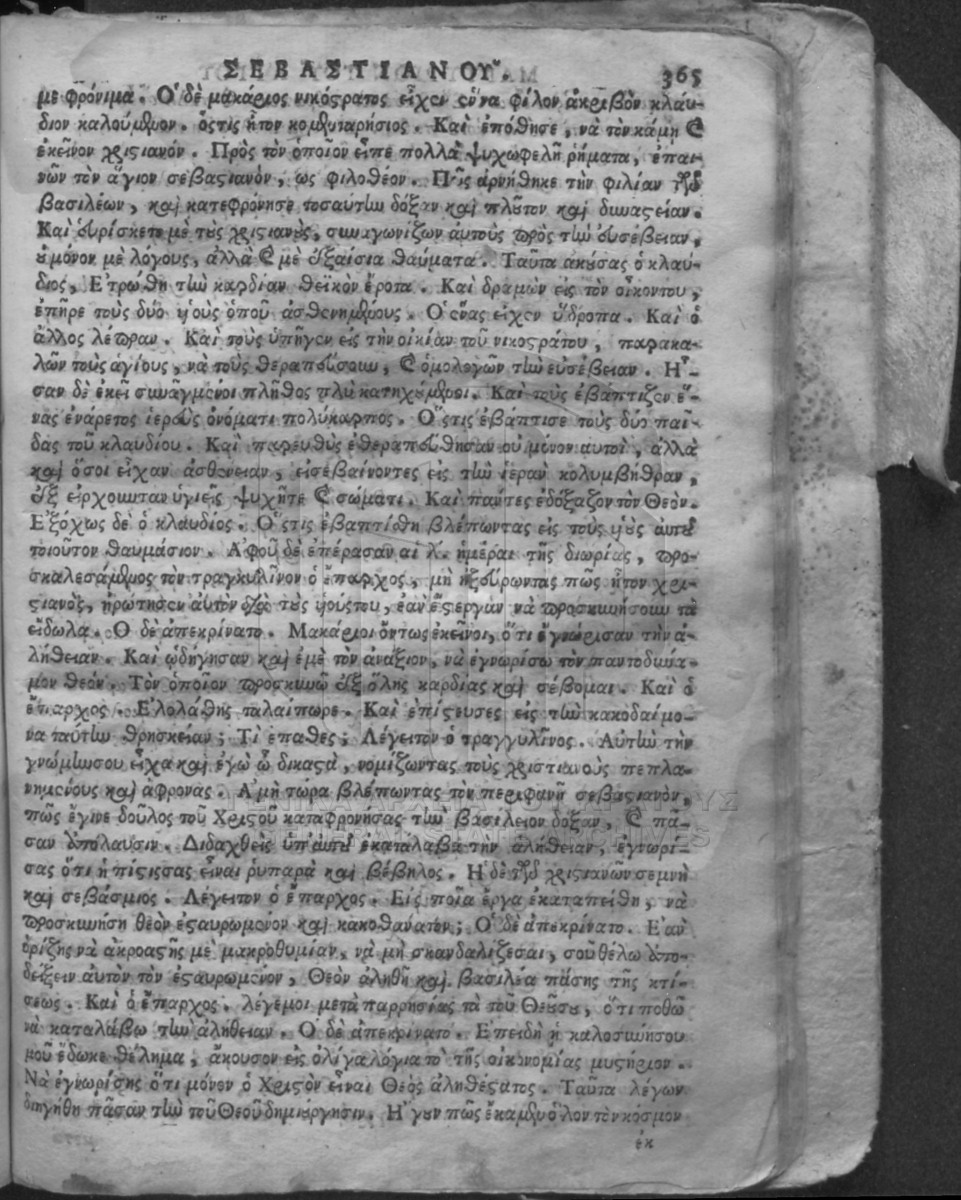 ΣΕΒΑΣΤΙΑΝΟΥ͂. 365
με φρόνιμα. Ὁ δὲ μακάριος νικόςρατος εἶχεν ἕνα φίλον ἀκριβὸν κλαύ-
διον καλούμενον. ὅςτις ἦτον κομενταρήσιος. Καὶ ἐπόθησε, νὰ τὸν κάμῃ καὶ
ἐκεῖνον χριςιανόν. Πρὸς τὸν ὁποῖον εἶπε πολλὰ ψυχωφελῆ ῥήματα, ἐπαι-
νῶν τὸν ἅγιον σεβαςιανὸν, ὡς φιλοθέον. Πῶς ἀρνήθηκε τὴν φιλίαν τῶν
βασιλέων, καὶ κατεφρόνησε τοσαύτην δόξαν καὶ πλοῦτον καὶ δυναςείαν.
Καὶ εὑρίσκετο μὲ τοὺς χριςιανοὺς, συναγωνίζων ἀυτοὺς πρὸς τὴν ἐυσέβειαν,
οὐ μόνον μὲ λόγους, ἀλλὰ καὶ μὲ ἐξαίσια θαύματα. Ταῦτα ἀκούσας ὁ κλαύ-
διος, Ἐτρώθη τὴν καρδίαν θεϊκὸν ἔροτα. Καὶ δραμὼν εἰς τὸν οἶκοντου,
ἐπῆρε τοὺς δύο ὑοὺς ὁποῦ ἀσθενημένους. Ὁ ἕνας εἶχεν ὕδροπα. Καὶ ὁ
ἄλλος λέπραν. Καὶ τοὺς ὑπῆγεν εἰς τὴν οἰκίαν τοῦ νικοςράτου, παρακα-
λῶν τοὺς ἁγίους, νὰ τοὺς θεραπεύσουν, καὶ ὁμολογῶν τὴν εὐσέβειαν. Ἦ-
σαν δὲ ἐκεῖ συναγμένοι πλῆθος πλὺ κατηχούμενοι. Καὶ τοὺς ἐβάπτιζεν ἕ-
νας ἐνάρετος ἱερεὺς ὀνόματι πολύκαρπος. Ὅςτις ἐβάπτισε τοὺς δύο παῖ-
δας τοῦ κλαυδίου. Καὶ παρευθὺς ἐθεραπεύθησαν οὐ μόνον αυτοὶ, ἀλλὰ
καὶ ὅσοι εἶχαν ἀσθένειαν, εἰσεβαίνοντες εἰς τὴν ἱερὰν κολυμβήθραν,
ἐξ εἰρχουνταν ὑγιεῖς ψυχῆτε καὶ σώματι. Καὶ πάντες ἐδόξαζον τὸν Θεόν.
Ἐξόχως δὲ ὁ κλαύδιος. Ὅςτις ἐβαπτίσθη βλέπωντας εἰς τοὺς ὑοὺς ἀυτοῦ
τοιοῦτον θαυμάσιον. Ἀφοῦ δὲ ἐπέρασαν αἱ λ. ἡμέραι τῆς διωρίας, προ-
σκαλεσάμενος τὸν τραγκυλῖνον ὁ ἔπαρχος, μὴ ἠξεύρωντας πῶς ἦτον χρι-
ςιανὸς, ἠρώτησεν ἀυτὸν διὰ τοὺς ὑούςτου, ἐὰν ἔςεργαν νὰ προσκυνήσουν τὰ
εἴδωλα. Ὁ δὲ ἀπεκρίνατο. Μακάριοι ὄντως ἐκεῖνοι, ὅτι ἐγνώρισαν τὴν ἀ-
λήθειαν. Καὶ ὡδήγησαν καὶ ἐμὲ τὸν ἀνάξιον, νὰ ἐγνωρίσω τὸν παντοδύνα-
μον θεόν. Τὸν ὁποῖον προσκυνῶ ἐξ ὅλης καρδίας καὶ σέβομαι. Καὶ ὁ
ἔπαρχος. Ἐλολάθης ταλαίπωρε. Καὶ ἐπίςευσες εἰς τὴν κακοδαίμο-
να ταύτην θρησκείαν; Τί ἔπαθες; Λέγειτον ὁ τραγγυλῖνος. Αὐτὴν τὴν
γνώμηνσου εἶχα καὶ ἐγὼ ὦ δικαςά, νομίζωντας τοὺς χριστιανοὺς πεπλα-
νημένους καὶ ἄφρονας. Ἀμὴ τώρα βλέπωντας τὸν περιφανῆ σεβαςιανὸν,
πῶς ἔγινε δοῦλος τοῦ Χριςοῦ καταφρονήσας τὴν βασίλειον δόξαν, καὶ πᾶ-
σαν ἀπόλαυσιν. Διδαχθεὶς ὑπ' ἀυτοῦ ἐκατάλαβα τὴν ἀλήθειαν, ἐγνωρί-
σας ὅτι ἡ πίςιςσας εἶναι ῥυπαρὰ καὶ βέβηλος. Ἡ δὲ τῶν χριςιανῶν σεμνὴ
καὶ σεβάσμιος. Λέγειτον ὁ ἔπαρχος. Εἰς ποῖα ἔργα ἐκαταπείθη, νὰ
προσκυνήσῃ θεὸν ἐςαυρωμένον καὶ κακοθάνατον; Ὁ δὲ ἀπεκρίνατο. Ἐὰν
ὁρίζῃς νὰ ἀκροαςῇς μὲ μακροθυμίαν, νὰ μὴ σκανδαλίζεσαι, σοῦ θέλω ἀπο-
δείξειν ἀυτὸν τὸν ἐςαυρωμένον, Θεὸν ἀληθῆ καὶ βασιλέα πάσης τῆς κτί-
σεως. Καὶ ὁ ἔπαρχος. λέγεμοι μετὰ παρρησίας τὰ τοῦ Θεοῦσου, ὅτι ποθῶ
νὰ καταλάβω τὴν ἀλήθειαν. Ὁ δὲ ἀπεκρίνατο. Ἐπειδὴ ἡ καλοσύνησου
μοῦ ἔδωκε θέλημα, ἄκουσον εἰς ὀλίγα λόγια τὸ τῆς οἰκονομίας μυςήριον.
Νὰ ἐγνωρίσῃς ὅτι μόνον ὁ Χριςὸν εἶναι Θεὸς ἀληθέςατος. Ταῦτα λέγων
διηγήθη πᾶσαν τὴν τοῦ Θεοῦ δημιούργησιν. Ἤγουν πῶς ἔκαμεν ὅλον τὸν κόσμον
ἐκ
ΓΕΝΙΚΑ ΑΡΧΕΙΑ ΤΟΥ ΚΡΑΤΟΥΣ
GENERAL STATE ARCHIVES